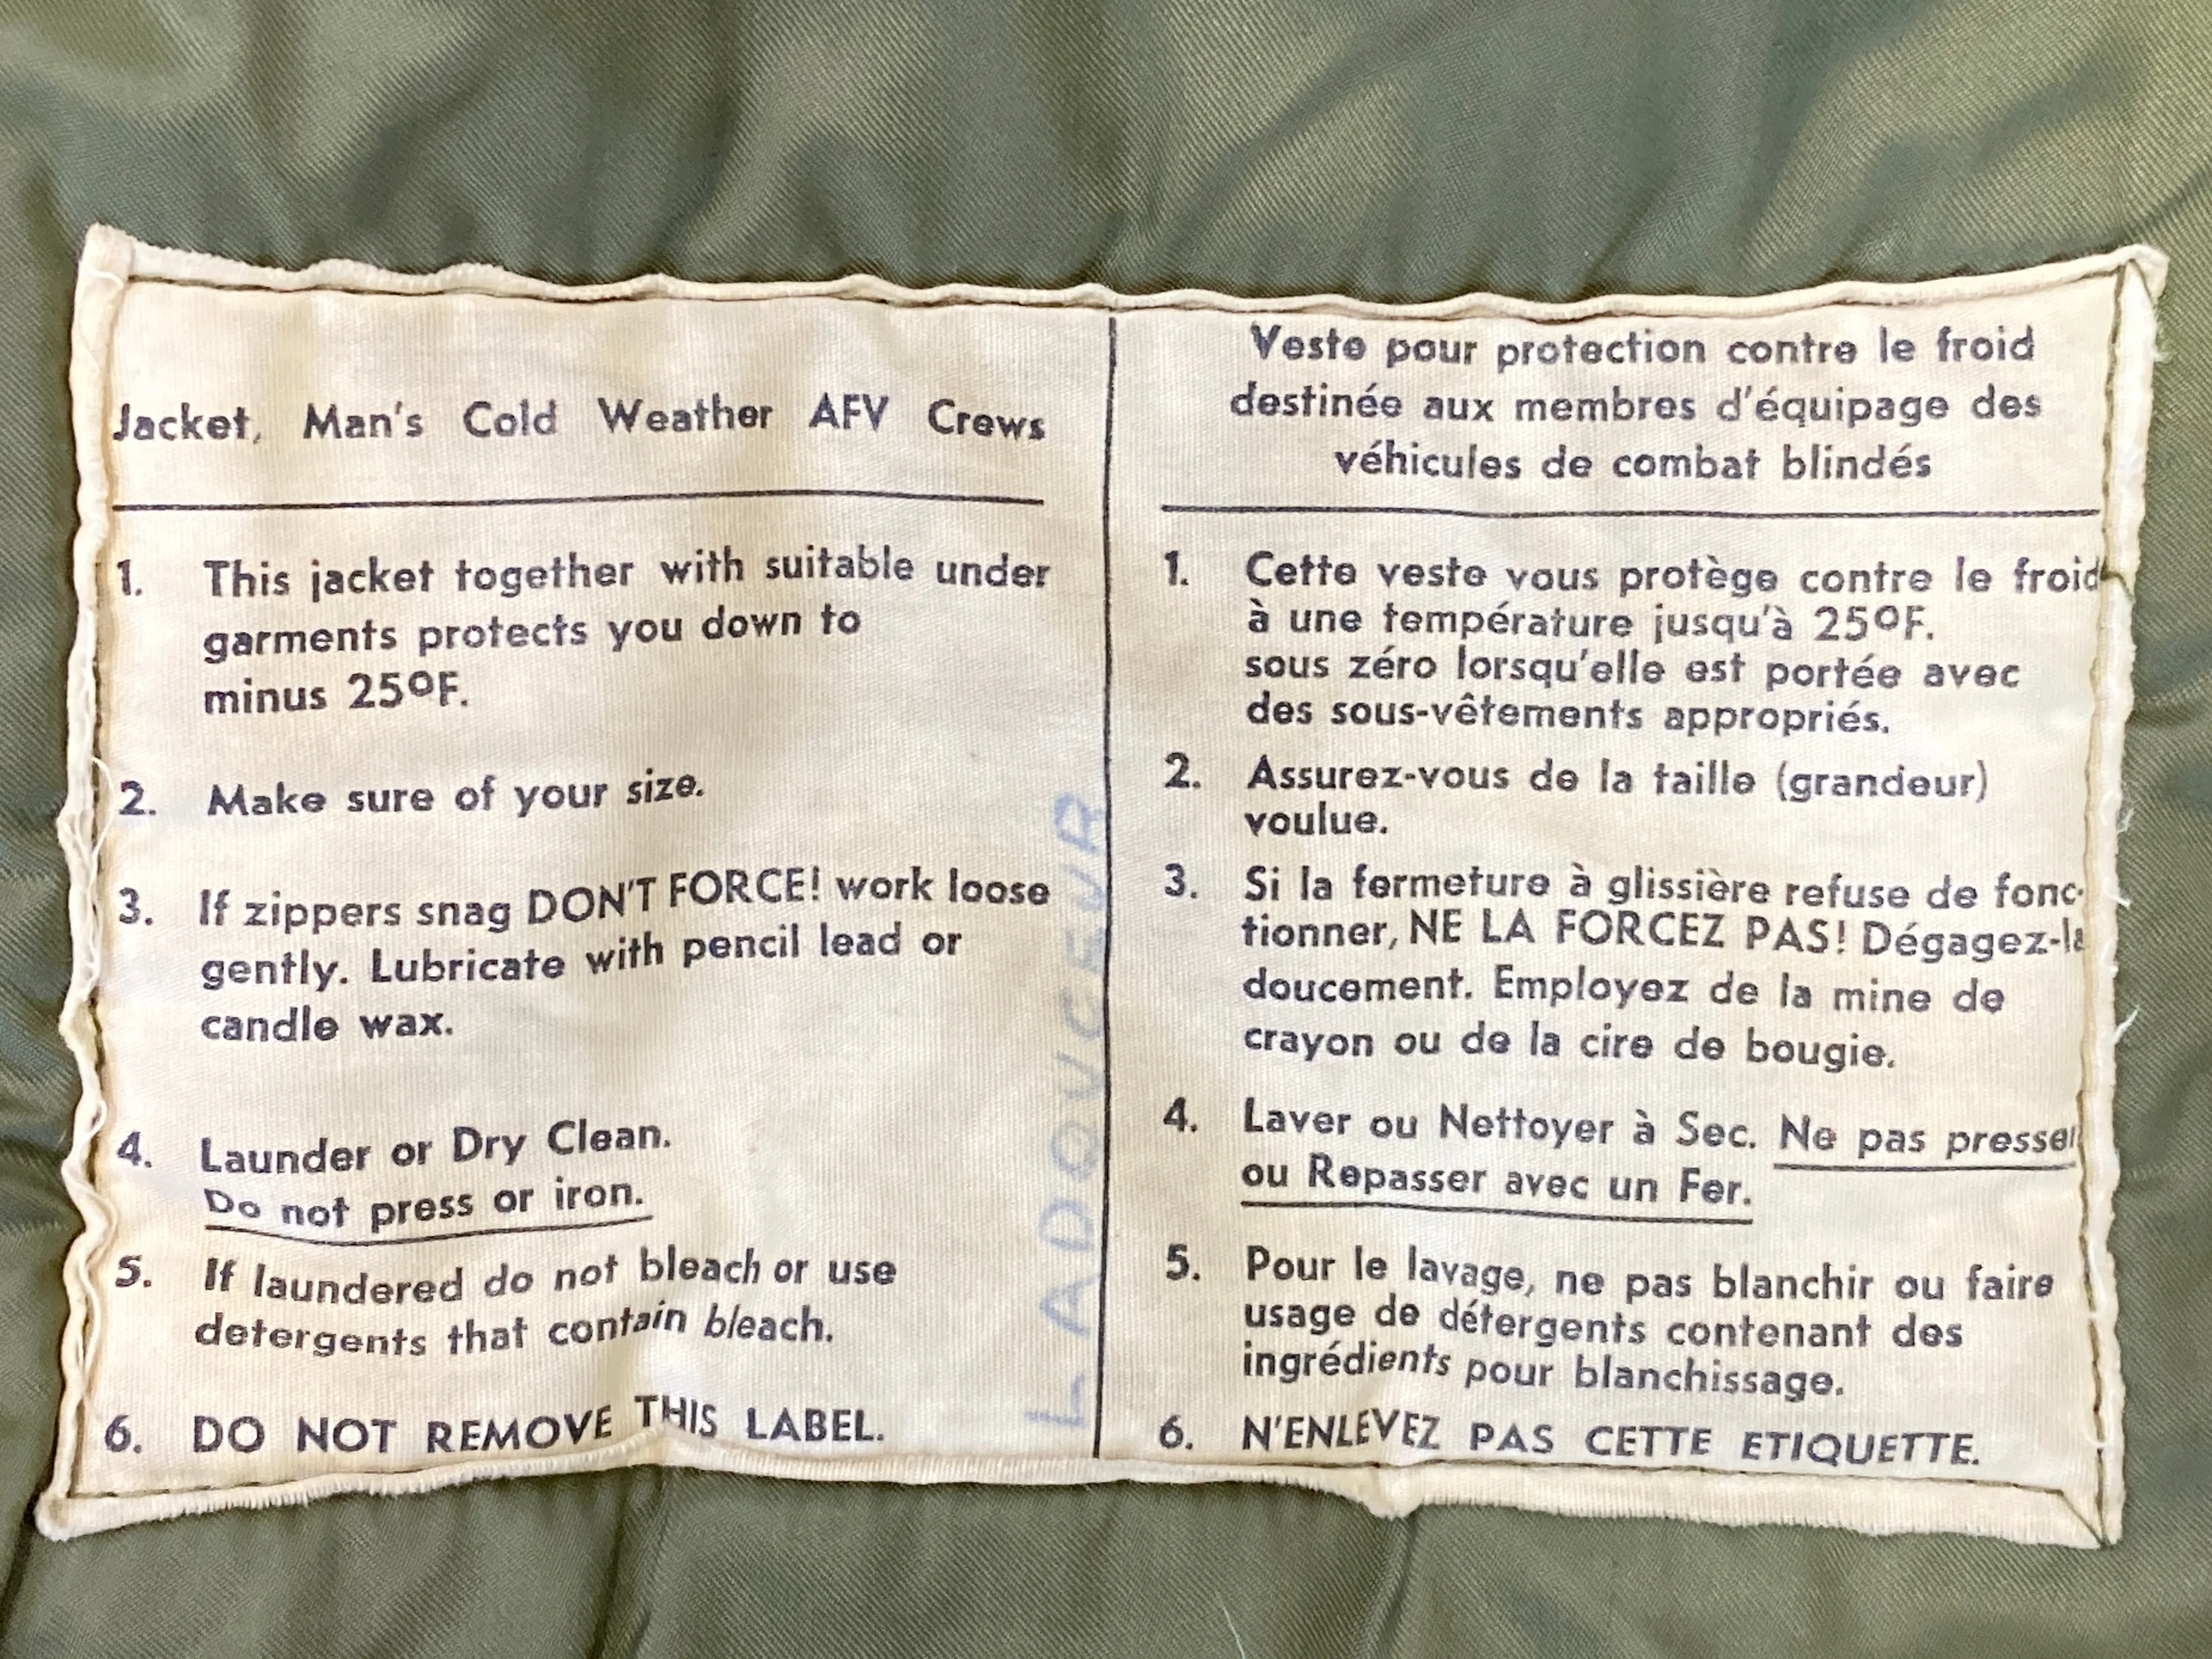 Jacket, Man's Cold Weather AFV Crews
1. This jacket together with suitable under
garments protects you down to
minus 25ºF.
2. Make sure of your size.
3. If zippers snag DON'T FORCE! work loose
gently. Lubricate with pencil lead or
candle wax.
4. Launder or Dry Clean.
Do not press or iron.
5. If laundered do not bleach or use
detergents that contain bleach.
6. DO NOT REMOVE THIS LABEL.
LADOUCEUR
Veste pour protection contre le froid
destinée aux membres d'équipage des
véhicules de combat blindés
1. Cette veste vous protège contre le froid
à une température jusqu'à 25ºF.
sous zéro lorsqu'elle est portée avec
des sous-vêtements appropriés.
2. Assurez-vous de la taille (grandeur)
voulue.
3. Si la fermeture à glissière refuse de fonc-
tionner, NE LA FORCEZ PAS! Dégagez-la
doucement. Employez de la mine de
crayon ou de la cire de bougie.
4. Laver ou Nettoyer à Sec. Ne pas presser
ou Repasser avec un Fer.
5. Pour le lavage, ne pas blanchir ou faire
usage de détergents contenant des
ingrédients pour blanchissage.
6. N'ENLEVEZ PAS CETTE ETIQUETTE.